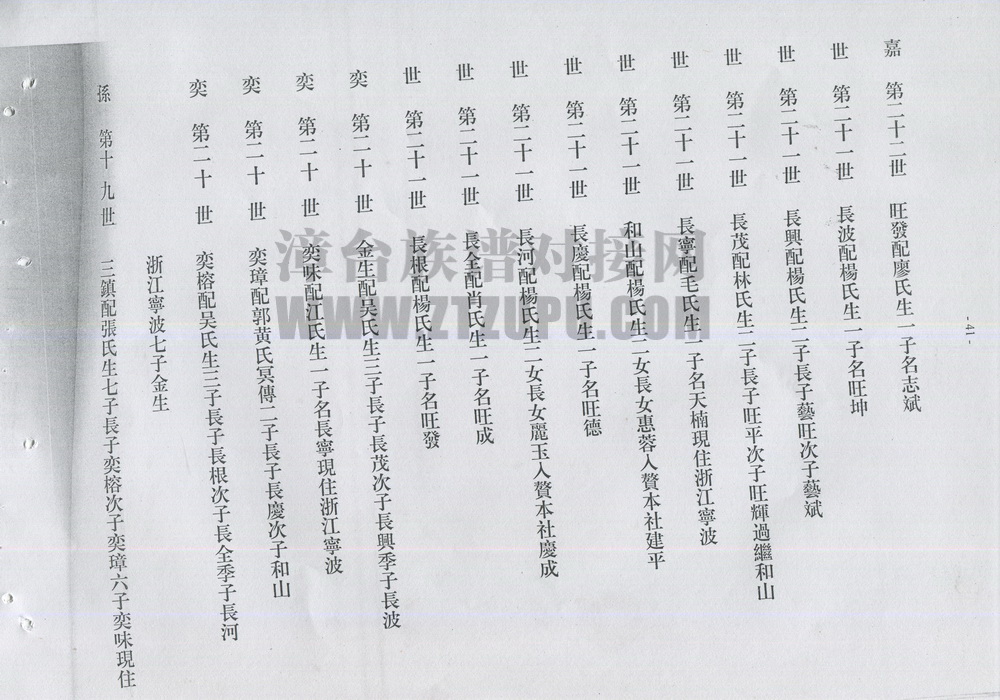 孫 第十九世 三鎮配張氏生七子長子奕榕次子奕璋六子奕味現住
浙江寧波七子金生
奕 第二十世 奕榕配吴氏生三子長子長根次子長全季子長河
奕 第二十世 奕璋配郭黄氏冥傳二子長子長慶次子和山
奕 第二十世 奕味配江氏生一子名長寧現住浙江寧波
奕 第二十世 金生配吴氏生三子長子長茂次子長興季子長波
世 第二十一世 長根配楊氏生一子名旺發
世 第二十一世 長全配肖氏生一子名旺成
世 第二十一世 長河配楊氏生二女長女麗玉入贅本社慶成
世 第二十一世 長慶配楊氏生一子名旺德
世 第二十一世 和山配楊氏生二女長女惠蓉入贅本社建平
世 第二十一世 長寧配毛氏生一子名天楠現住浙江寧波
世 第二十一世 長茂配林氏生二子長子旺平次子旺輝過繼和山
世 第二十一世 長興配楊氏生二子長子藝旺次子藝斌
世 第二十一世 長波配楊氏生一子名旺坤
嘉 第二十二世 旺發配廖氏生一子名志斌
-41-
漳台族谱对接网
WWW.ZTZUPU.COM